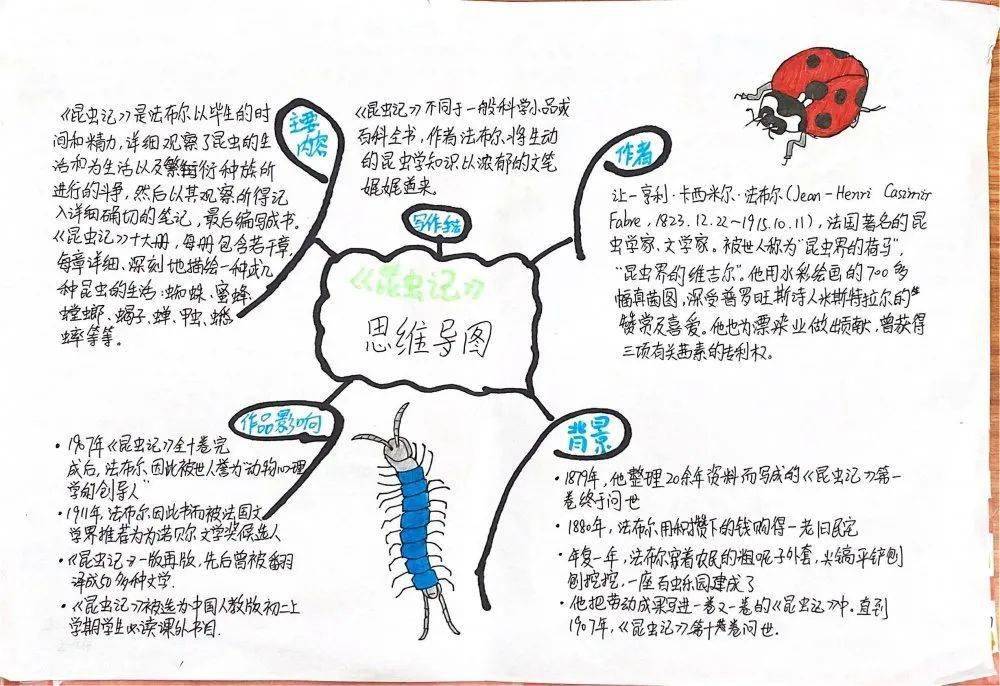 《昆虫记》
思维导图
主要
内容
《昆虫记》是法布尔以毕生的时
间和精力,详细观察了昆虫的生
活和为生活以及繁衍种族所
进行的斗争,然后以其观察所得记
入详细确切的笔记,最后编写成书。
《昆虫记》十大册,每册包含若干章,
每章详细、深刻地描绘一种或几
种昆虫的生活:蜘蛛、蜜蜂、
螳螂、蝎子、蝉、甲虫、蟋
蟀等等。
写作手法
《昆虫记》不同于一般科学小品或
百科全书,作者法布尔将生动
的昆虫学知识以浓郁的文笔
娓娓道来。
作者
让-亨利·卡西米尔·法布尔(Jean-Henri Casimir
Fabre,1823.12.22~1915.10.11),法国著名的昆
虫学家、文学家。被世人称为"昆虫界的荷马",
"昆虫界的维吉尔"。他用水彩绘画的700多
幅真菌图,深受普罗旺斯诗人米斯特拉尔的
赞赏及喜爱。他也为漂染业做出贡献,曾获得
三项有关茜素的专利权。
作品影响
• 1907年《昆虫记》全十卷完
成后,法布尔因此被世人誉为"动物心理
学的创导人"
• 1911年,法布尔因此书而被法国文
学界推荐为为诺贝尔文学奖候选人
• 《昆虫记》一版再版,先后曾被翻
译成50多种文学.
• 《昆虫记》被选为中国人教版初一上
学期学生必读课外书目.
背景
• 1879年,他整理20余年资料而写成的《昆虫记》第一
卷终于问世
• 1880年,法布尔用积攒下的钱购得一老旧民宅
• 年复一年,法布尔穿着农民的粗呢子外套,尖镐平铲刨
刨挖挖,一座百虫乐园建成了
• 他把劳动成果写进一卷又一卷的《昆虫记》中.直到
1907年,《昆虫记》第十卷问世.